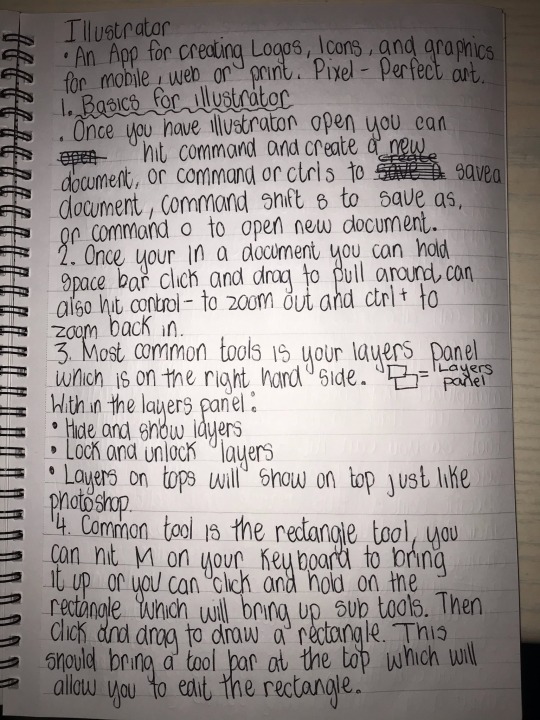 Illustrator
• An App for creating Logos, Icons, and graphics
for mobile, web or print. Pixel-Perfect art.
1. Basics for illustrator
. Once you have illustrator open you can
hit command and create a new
document, or command or ctrl s to save a
document, command shift s to save as,
or command o to open new document.
2. Once your in a document you can hold
space bar click and drag to pull around, can
also hit control - to zoom out and ctrl + to
zoom back in.
3. Most common tools is your layers panel
which is on the right hand side. = Layers
panel
With in the layers panel:
• Hide and show layers
• Lock and unlock layers
• Layers on tops will show on top just like
photoshop.
4. Common tool is the rectangle tool, you
can hit M on your Keyboard to bring
it up or you can click and hold on the
rectangle which will bring up sub tools. Then
click and drag to draw a rectangle. This
should bring a tool bar at the top which will
allow you to edit the rectangle.